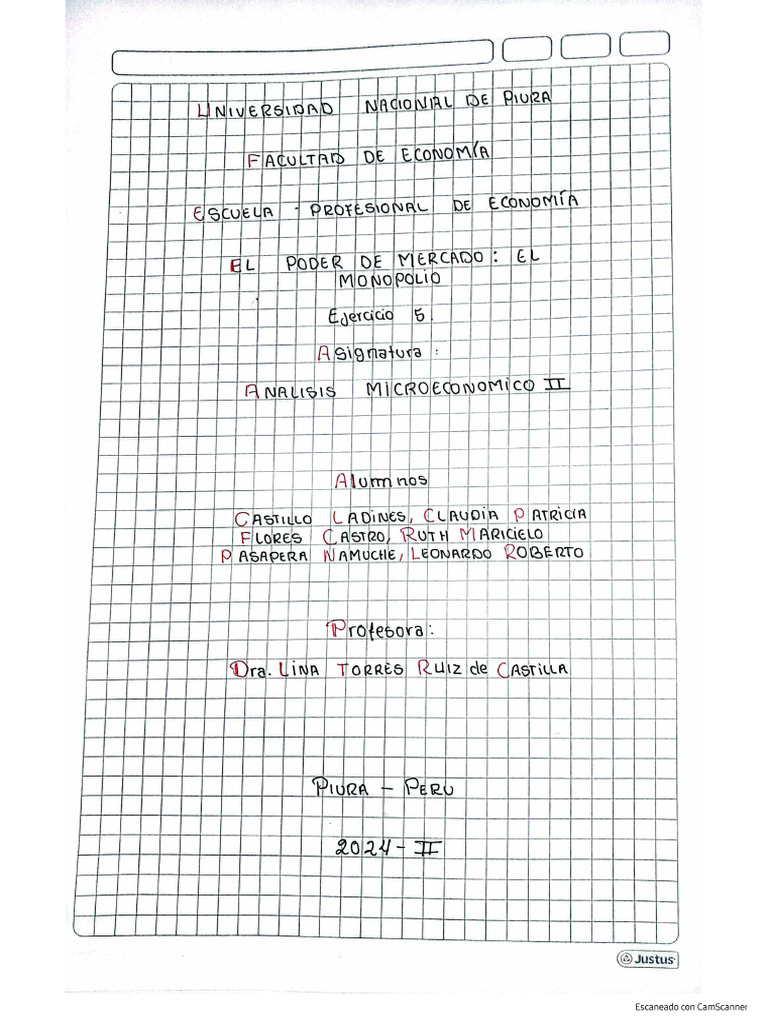 UNIVERSIDAD NACIONAL DE PIURA
FACULTAD DE ECONOMÍA
ESCUELA PROFESIONAL DE ECONOMÍA
EL PODER DE MERCADO: EL
MONOPOLIO
Ejercicio 5.
Asignatura:
ANALISIS MICROECONOMICO II
Alumnos
CASTILLO LADINES, CLAUDIA PATRICIA
FLORES CASTRO, RUTH MARICIELO
PASAPERA NAMUCHE, LEONARDO ROBERTO
Profesora:
Dra. LINA TORRES RUIZ de CASTILLA
PIURA - PERU
2024-II
Justus
Escaneado con CamScanner